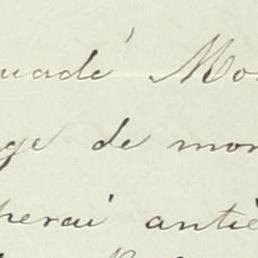 uadé Mo
ge de mon
herai antiè